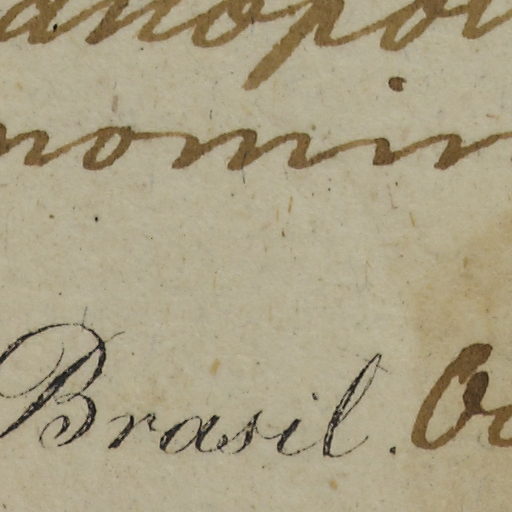 anopol
nomin
Brasil. Oc